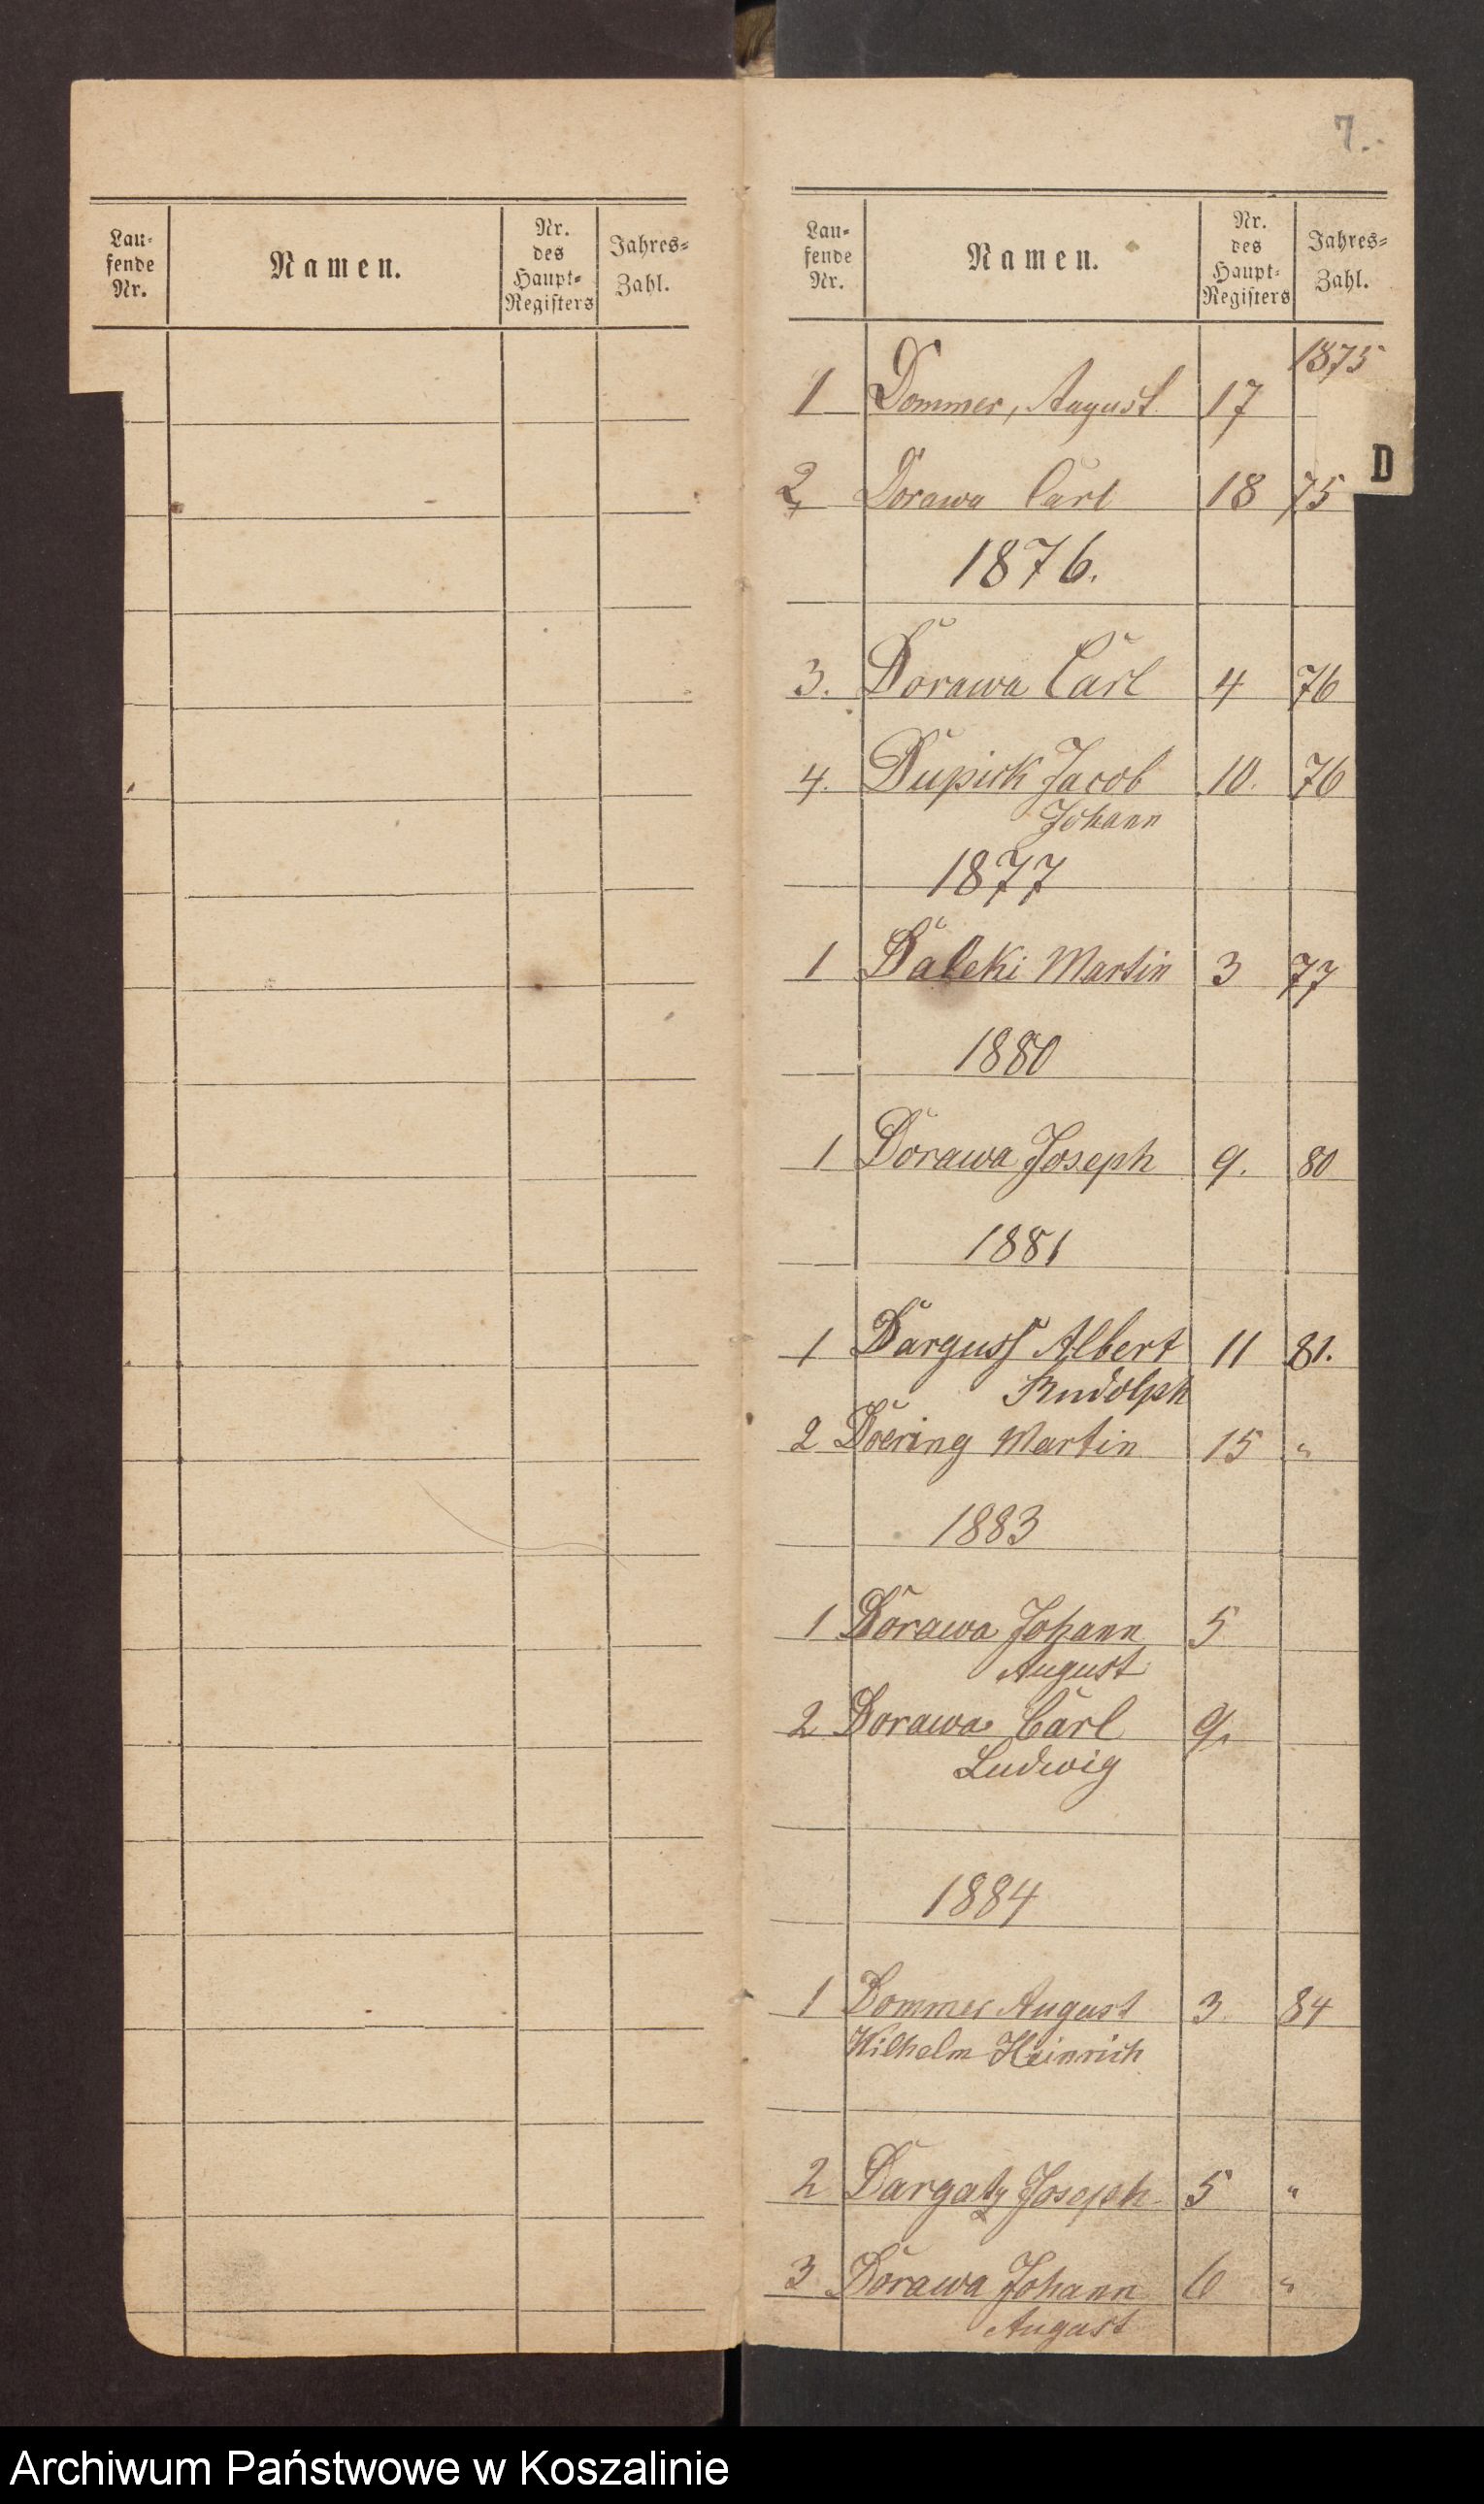 7.
Lau-
fende
Nr.
Namen.
Nr.
des
Haupt-
Registers
Jahres-
Zahl.
Lau-
fende
Nr.
Namen.
Nr.
des
Haupt-
Registers
Jahres-
Zahl.
1875
1 Dommer, August 17
D
2 Dorawa Carl 18 75
1876.
3. Dorawa Carl 4 76
4. Dupick Jacob 10. 76
Johann
1877
1 Daleki Martin 3 77
1880
1 Dorawa Joseph 9. 80
1881
1 Darguss Albert 11 81.
Rudolph
2 Doering Martin 15 "
1883
1 Dorawa Johann 5
August
2 Dorawa Carl 9.
Ludwig
1884
1 Dommer August 3. 84
Wilhelm Heinrich
2 Dargatz Joseph 5 "
3 Dorawa Johann 6 "
August
Archiwum Państwowe w Koszalinie